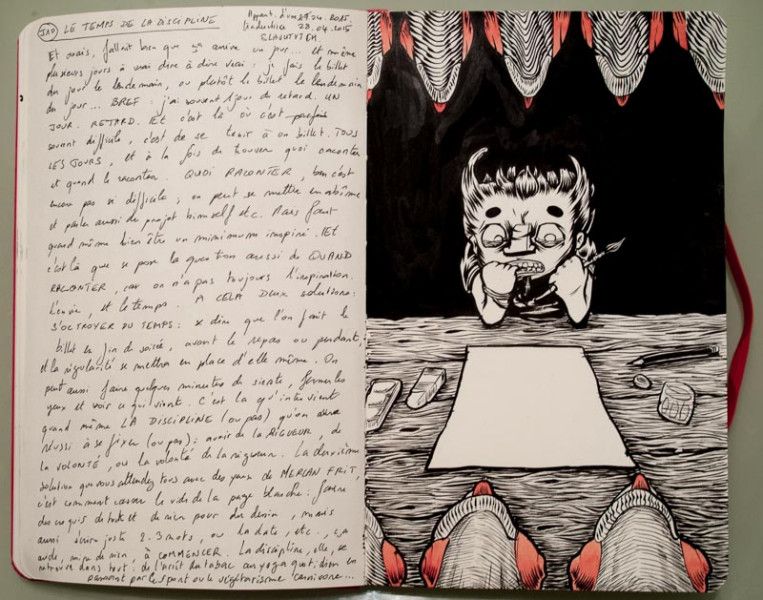 J20 LE TEMPS DE LA DISCIPLINE
Appart. d'une 29.04.2015
traductrice 28.04.2015
SLAVUTYCH
Et ouais, fallait bien que ça arrive un jour... et même
plusieurs jours à vrai dire à dire vrai : je fais le billet
du jour le lendemain, ou plutôt le billet le lendemain
du jour... BREF : j'ai souvent 1 jour de retard. UN
JOUR. RETARD. Et c'est là où c'est parfois
souvent difficile, c'est de se tenir à un billet. TOUS
LES JOURS, et à la fois de trouver quoi raconter
et quand le raconter. QUOI RACONTER, bon c'est
encore pas si difficile ; on peut se mettre en abîme
et parler aussi du projet himself etc. Mais faut
quand même bien être un minimum inspiré. Et
c'est là que se pose la question aussi du QUAND
RACONTER, car on n'a pas toujours l'inspiration.
L'envie, et le temps. A CELA DEUX solutions :
S'OCTROYER DU TEMPS : se dire que l'on fait le
billet en fin de soirée, avant le repas ou pendant,
et la régularité se mettra en place d'elle même. On
peut aussi faire quelques minutes de sieste, fermer les
yeux et voir ce qui vient. C'est là qu'intervient
quand même LA DISCIPLINE (ou pas) qu'on
réussi à se fixer (ou pas) : avoir de la RIGUEUR, de
la VOLONTÉ, ou la volonté de la rigueur. La deuxième
solution que vous attendez tous avec des yeux de MERLAN FRIT,
c'est comment casser le vide de la page blanche : faire
des croquis de tout et de rien pour du dessin, mais
aussi écrire juste 2-3 mots, ou la date, etc., ça
aide, mine de rien, à COMMENCER. La discipline, elle, se
retrouve dans tout : de l'arrêt du tabac au yoga quotidien en
passant par le sport ou le végétarisme carnivore...